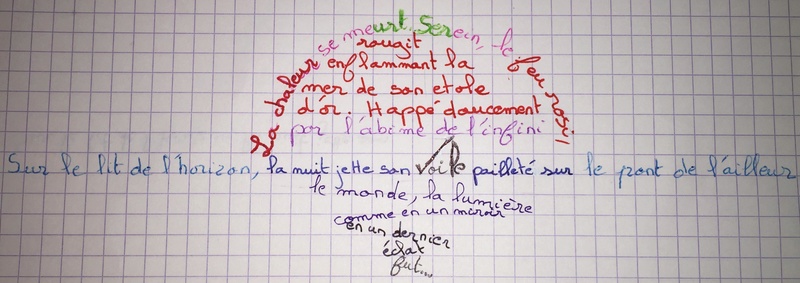 La chaleur se meurt. Serein, le feu rosi!
rougit
enflammant la
mer de son etole
d'or. Happé doucement
par l'abime de l'infini
Sur le lit de l'horizon, la nuit jette son voile pailleté sur le pont de l'ailleur
le monde, la lumière
comme en un miroir
en un dernier
éclat
fut...